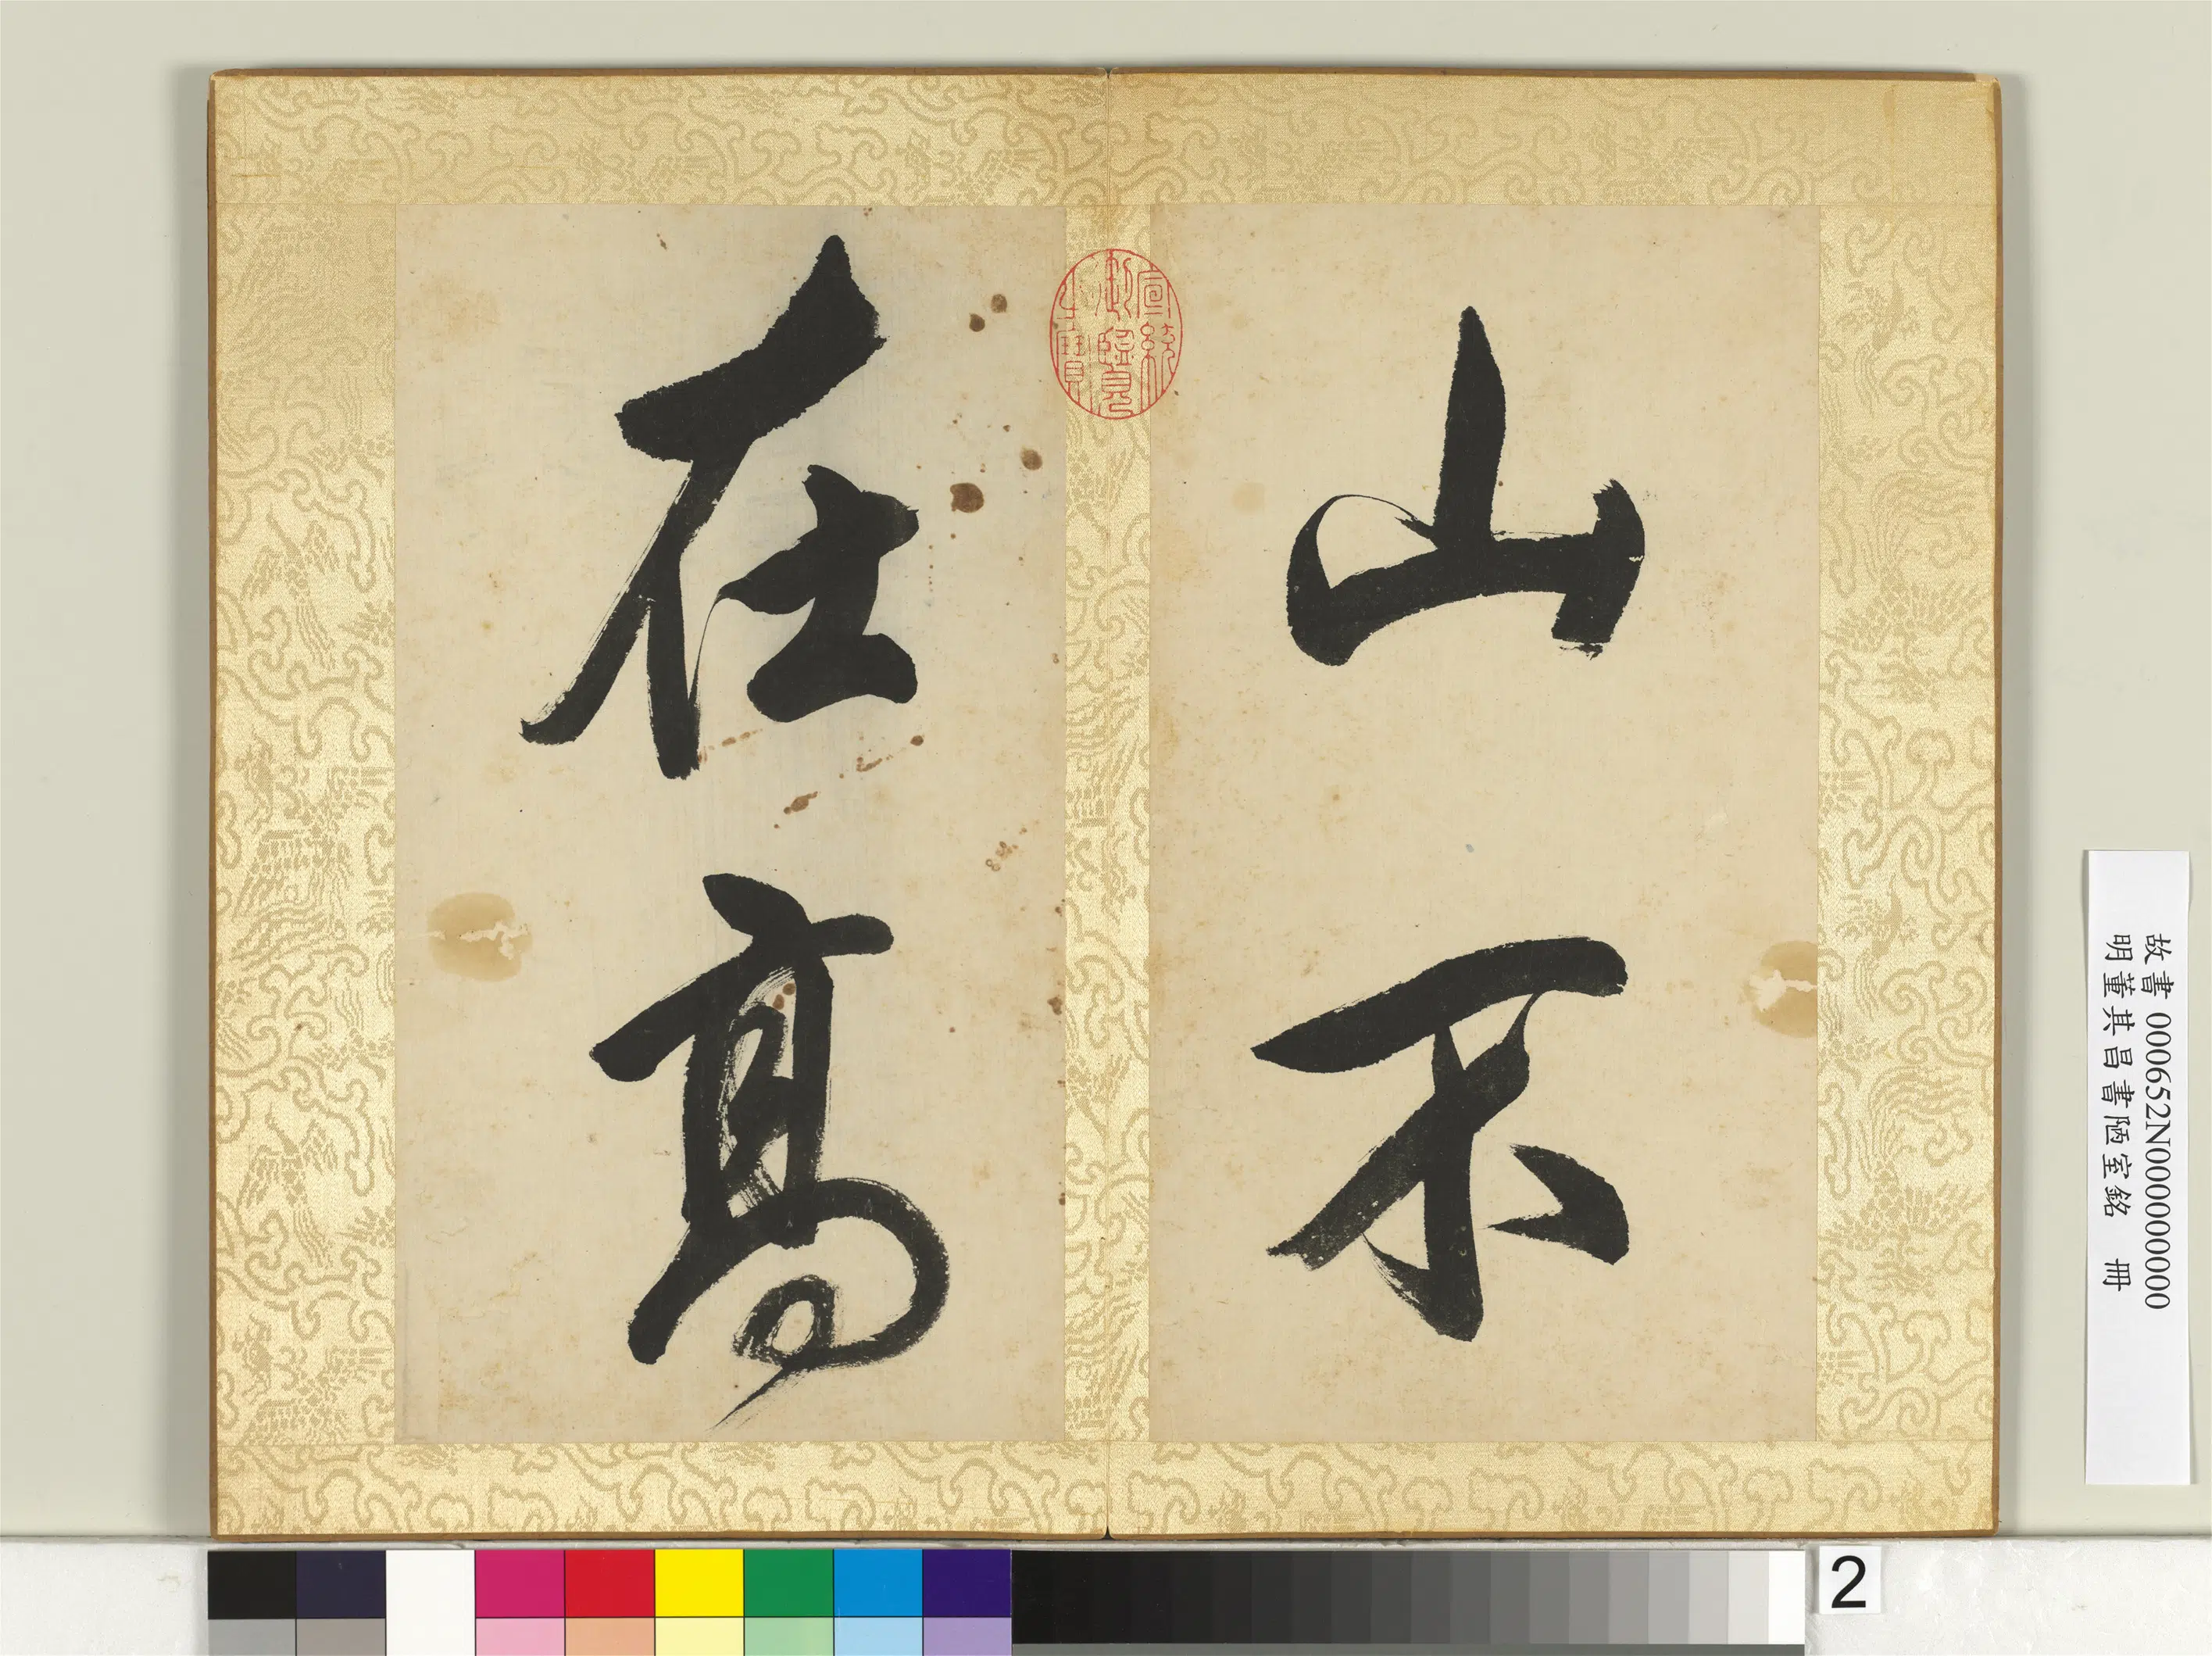 山不
在高
宣統
御覽
之寶
故書 000652N000000000
明董其昌書陋室銘 冊
2